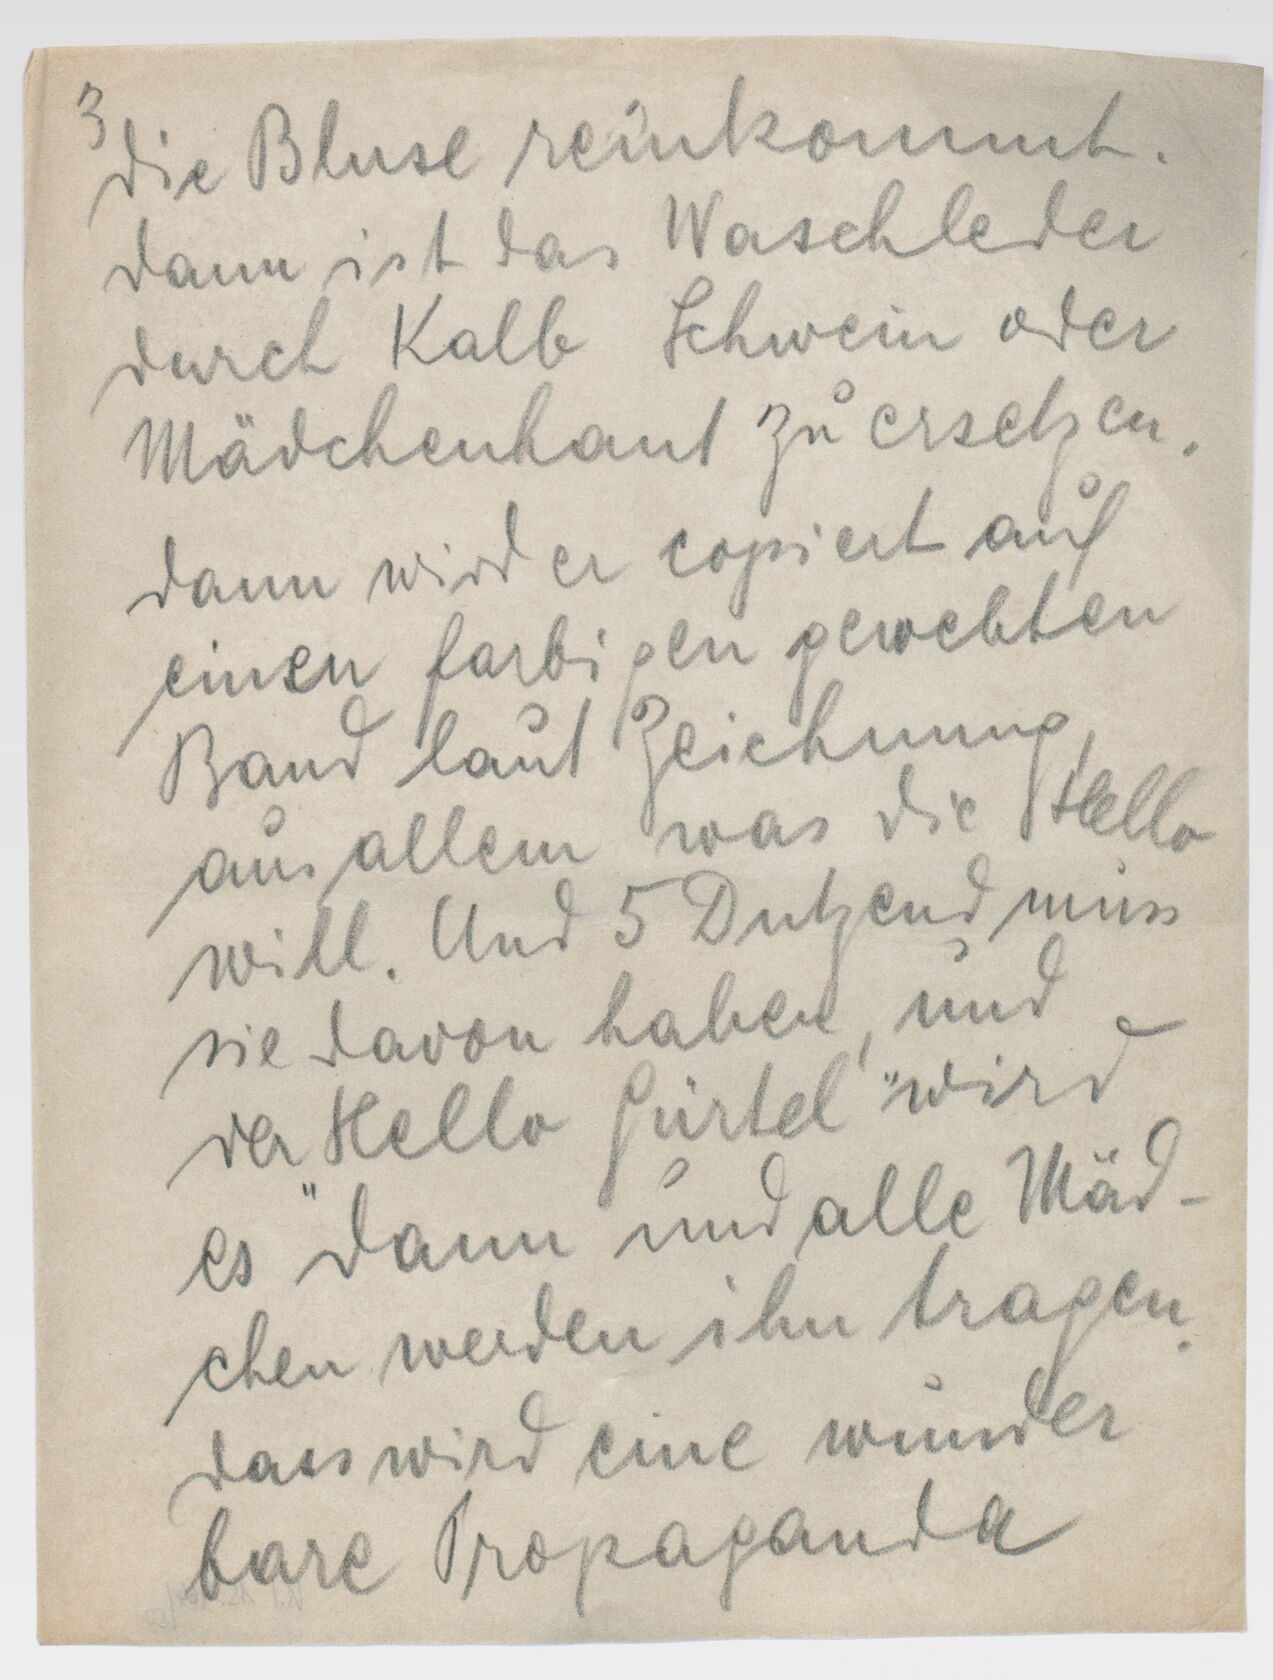 3
die Bluse reinkommt.
dann ist das Waschleder
durch Kalb Schwein oder
Mädchenhaut zu ersetzen.
dann wird er copiert auf
einen farbigen gewebten
Band laut Zeichnung,
aus allem was die Hello
will. Und 5 Dutzend muss
sie davon haben, und
der "Hello Gürtel" wird
es dann und alle Mäd-
chen werden ihn tragen.
dass wird eine wunder
bare Propaganda